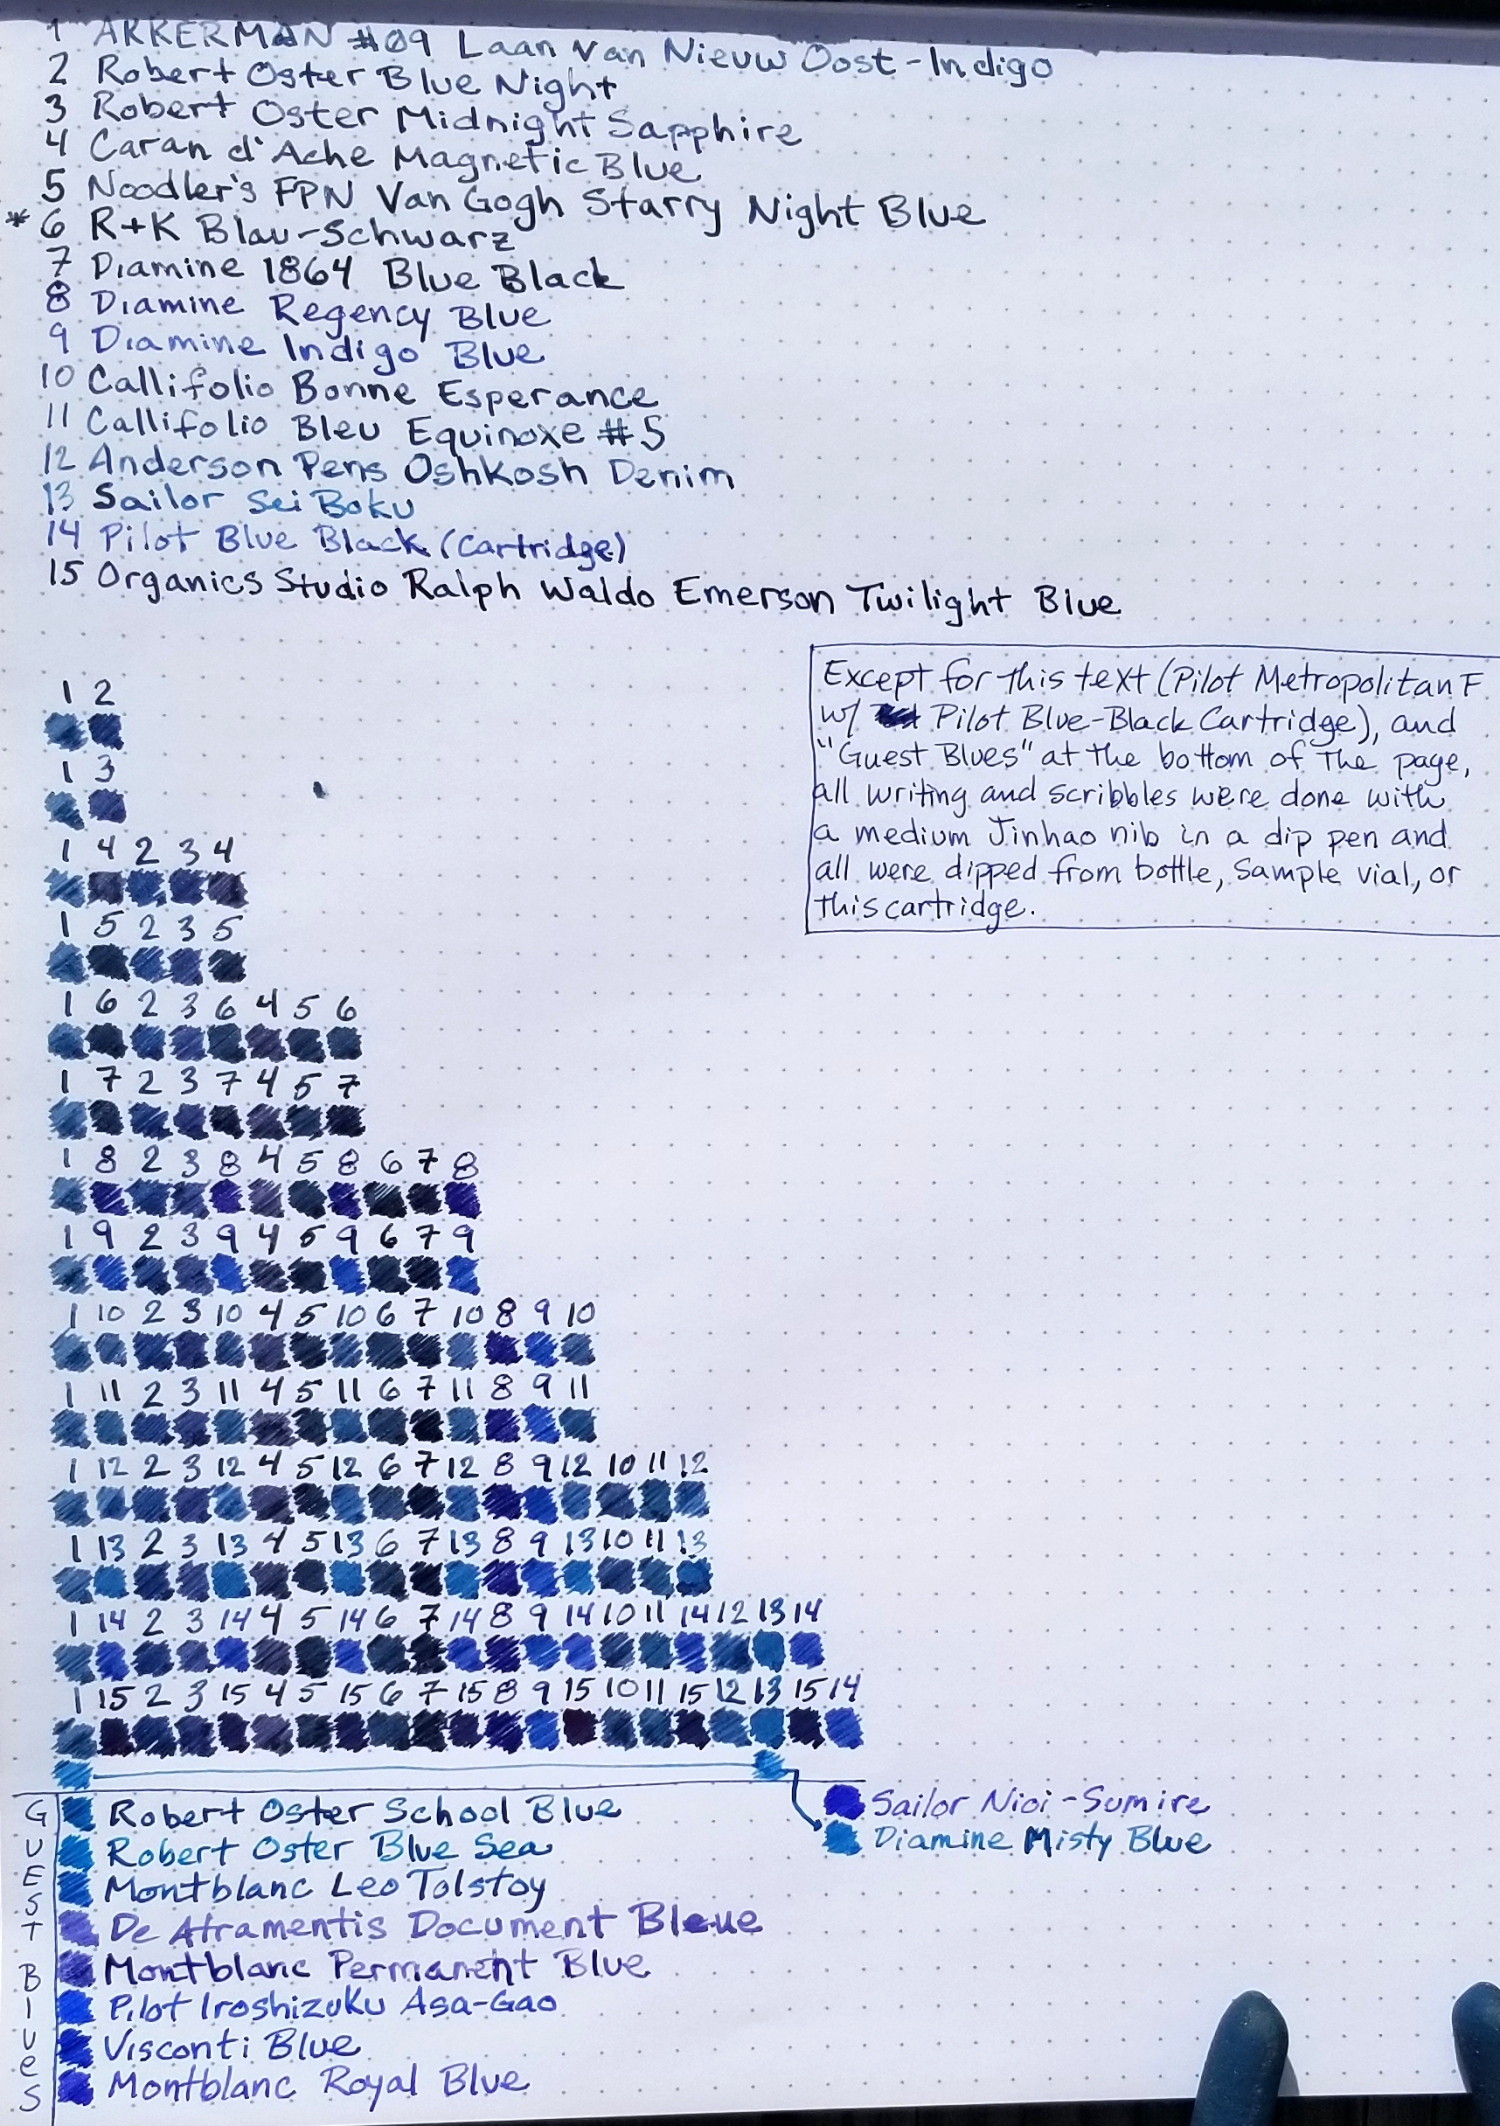 1 AKKERMAN #09 Laan van Nieuw Oost-Indigo
2 Robert Oster Blue Night
3 Robert Oster Midnight Sapphire
4 Caran d'Ache Magnetic Blue
5 Noodler's FPN Van Gogh Starry Night Blue
* 6 R+K Blau-Schwarz
7 Diamine 1864 Blue Black
8 Diamine Regency Blue
9 Diamine Indigo Blue
10 Callifolio Bonne Esperance
11 Callifolio Bleu Equinoxe #5
12 Anderson Pens Oshkosh Denim
13 Sailor Sei Boku
14 Pilot Blue Black (Cartridge)
15 Organics Studio Ralph Waldo Emerson Twilight Blue
Except for this text (Pilot Metropolitan F
w/ Pilot Blue-Black Cartridge), and
"Guest Blues" at the bottom of the page,
all writing and scribbles were done with
a medium Jinhao nib in a dip pen and
all were dipped from bottle, sample vial, or
this cartridge.
1 2
1 3
1 4 2 3 4
1 5 2 3 5
1 6 2 3 6 4 5 6
1 7 2 3 7 4 5 7
1 8 2 3 8 4 5 8 6 7 8
1 9 2 3 9 4 5 9 6 7 9
1 10 2 3 10 4 5 10 6 7 10 8 9 10
1 11 2 3 11 4 5 11 6 7 11 8 9 11
1 12 2 3 12 4 5 12 6 7 12 8 9 12 10 11 12
1 13 2 3 13 4 5 13 6 7 13 8 9 13 10 11 13
1 14 2 3 14 4 5 14 6 7 14 8 9 14 10 11 14 12 13 14
1 15 2 3 15 4 5 15 6 7 15 8 9 15 10 11 15 12 13 15 14
GUEST BlUeS
Robert Oster School Blue
Robert Oster Blue Sea
Montblanc Leo Tolstoy
De Atramentis Document Bleue
Montblanc Permanent Blue
Pilot Iroshizuku Asa-Gao
Visconti Blue
Montblanc Royal Blue
Sailor Nioi-Sumire
Diamine Misty Blue